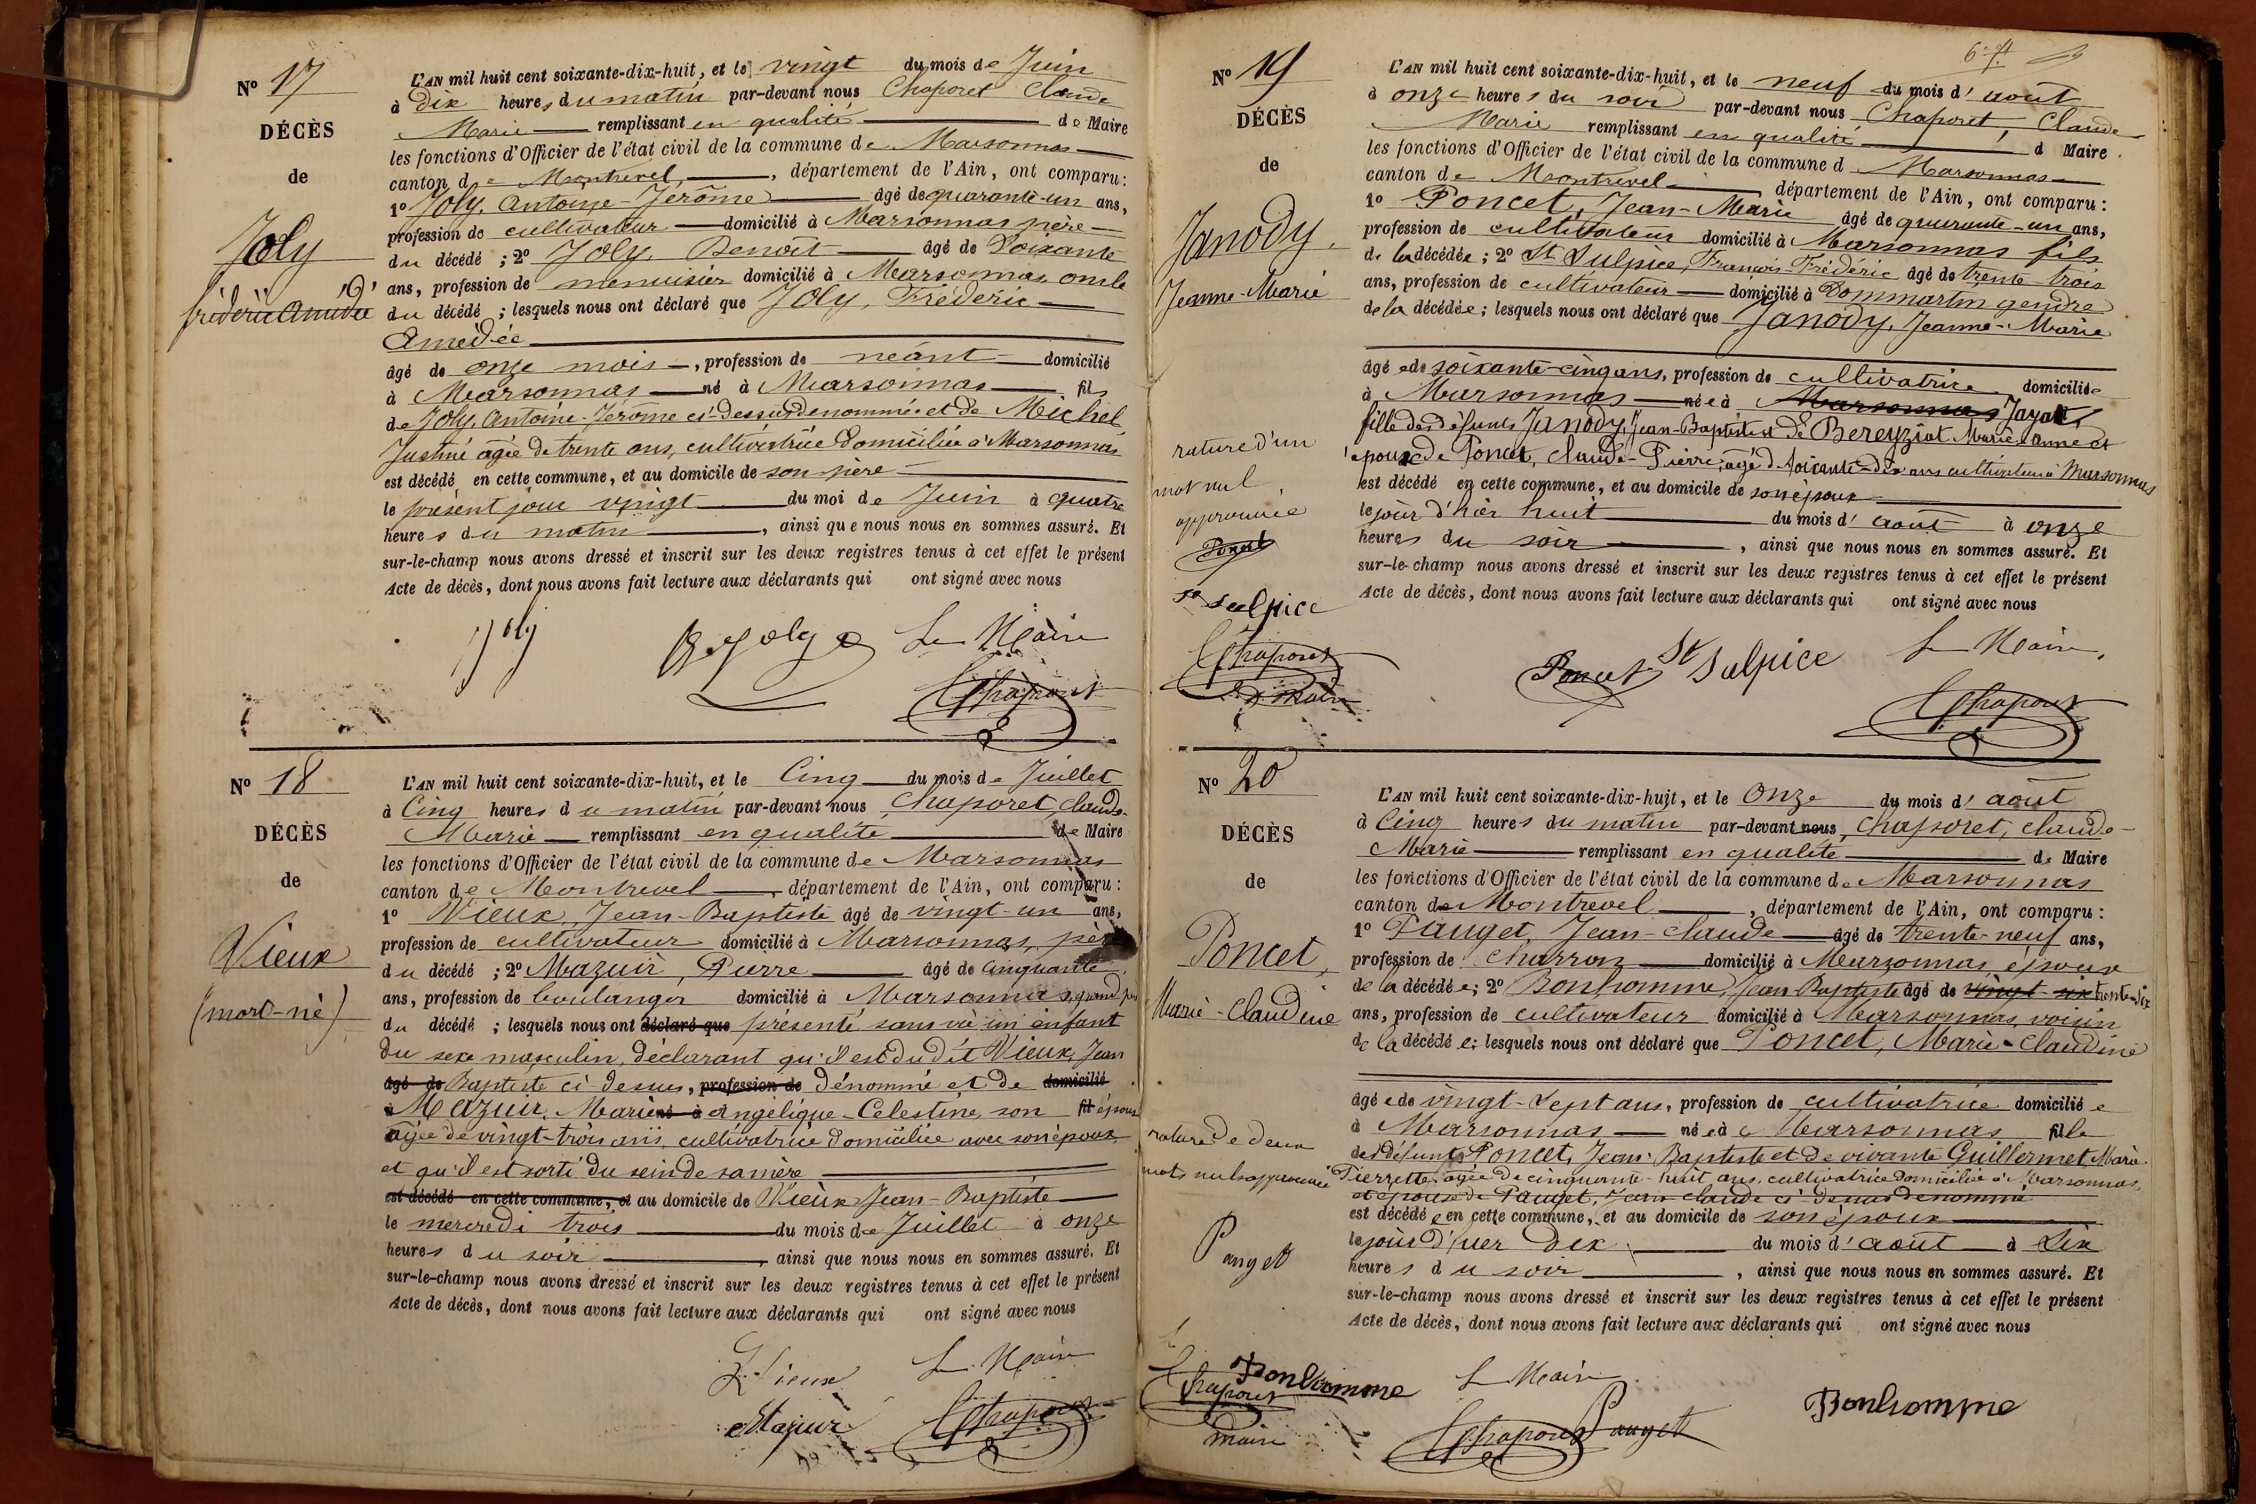 Nº 17
DÉCÈS
de
Joly
fréderic Amédée
L'AN mil huit cent soixante-dix-huit, et le vingt du mois de Juin
à dix heures du matin par-devant nous Chaporet Claude
Marie remplissant en qualité de Maire
les fonctions d'Officier de l'état civil de la commune de Marsonnas
canton de Montrevel, département de l'Ain, ont comparu:
1º Joly, Antoine-Jérôme âgé de quarante-un ans,
profession de cultivateur domicilié à Marsonnas père
du décédé ; 2º Joly, Benoit âgé de Soixante
ans, profession de menuisier domicilié à Marsonnas, oncle
du décédé ; lesquels nous ont déclaré que Joly, Fréderic
Amédée
âgé de onze mois, profession de néant domicilié
à Marsonnas né à Marsonnas fils
de Joly, Antoine-Jérome ci-dessus dénommé et de Michel
Justine agée de trente ans, cultivatrice domiciliée à Marsonnas
est décédé en cette commune, et au domicile de son père
le présent jour vingt du moi de Juin à quatre
heures du matin, ainsi que nous nous en sommes assuré. Et
sur-le-champ nous avons dressé et inscrit sur les deux registres tenus à cet effet le présent
Acte de décès, dont nous avons fait lecture aux déclarants qui ont signé avec nous
Joly Joly Le Maire
Chaporet
Nº 18
DÉCÈS
de
Vieux
(mort-né)
L'AN mil huit cent soixante-dix-huit, et le Cinq du mois de Juillet
à Cinq heures du matin par-devant nous Chaporet, Claude-
Marie remplissant en qualité de Maire
les fonctions d'Officier de l'état civil de la commune de Marsonnas
canton de Montrevel, département de l'Ain, ont comparu:
1º Vieux, Jean-Baptiste âgé de vingt-un ans,
profession de cultivateur domicilié à Marsonnas, père
du décédé ; 2º Mazuir, Pierre âgé de cinquante
ans, profession de boulanger domicilié à Marsonnas, grand père
du décédé ; lesquels nous ont déclaré que présenté sans vie un enfant
du sexe masculin, déclarant qu'il est du dit Vieux, Jean
âgé de Baptiste ci-dessus, profession de dénommé et de domicilié
à Mazuir, Marie né à Angélique-Celestine, son fil épouse
agée de vingt-trois ans, cultivatrice domiciliée avec son époux
et qu'il est sorti du sein de sa mère
est décédé en cette commune, et au domicile de Vieux Jean-Baptiste
le mercredi trois du mois de Juillet à onze
heures du soir, ainsi que nous nous en sommes assuré. Et
sur-le-champ nous avons dressé et inscrit sur les deux registres tenus à cet effet le présent
Acte de décès, dont nous avons fait lecture aux déclarants qui ont signé avec nous
Vieux Le Maire
Mazuir Chaporet
Nº 19
DÉCÈS
de
Janody,
Jeanne-Marie
rature d'un
mot nul
approuvée
Poncet
St Sulpice
Chaporet
Maire
L'AN mil huit cent soixante-dix-huit, et le neuf du mois d'août
à onze heures du soir par-devant nous Chaporet, Claude
Marie remplissant en qualité d Maire
les fonctions d'Officier de l'état civil de la commune d Marsonnas
canton de Montrevel département de l'Ain, ont comparu:
1º Poncet, Jean-Marie âgé de quarante-un ans,
profession de cultivateur domicilié à Marsonnas fils
de la décédée ; 2º St Sulpice, François-Frédéric âgé de trente trois
ans, profession de cultivateur domicilié à Dommartin gendre
de la décédée ; lesquels nous ont déclaré que Janody, Jeanne-Marie
âgée de soixante-cinq ans, profession de cultivatrice domiciliée
à Marsonnas née à Marsonnas Jayat
fille des défunts Janody, Jean-Baptiste et de Bereyziat Marie Anne et
épouse de Poncet, Claude-Pierre, âgé de soixante-dix ans cultivateur à Marsonnas
est décédé en cette commune, et au domicile de son époux
le jour d'hier huit du mois d'août à onze
heures du soir, ainsi que nous nous en sommes assuré. Et
sur-le-champ nous avons dressé et inscrit sur les deux registres tenus à cet effet le présent
Acte de décès, dont nous avons fait lecture aux déclarants qui ont signé avec nous
Poncet St Sulpice Le Maire,
Chaporet
Nº 20
DÉCÈS
de
Poncet,
Marie-Claudine
rature de deux
mots nuls approuvée
Panget
Bonhomme
Chaporet
Maire
L'AN mil huit cent soixante-dix-huit, et le Onze du mois d'août
à Cinq heures du matin par-devant nous Chaporet, Claude-
Marie remplissant en qualité de Maire
les fonctions d'Officier de l'état civil de la commune de Marsonnas
canton de Montrevel, département de l'Ain, ont comparu:
1º Panget, Jean-Claude âgé de trente-neuf ans,
profession de charron domicilié à Marsonnas, époux
de la décédée ; 2º Bonhomme, Jean Baptiste âgé de vingt-six trente-six
ans, profession de cultivateur domicilié à Marsonnas, voisin
de la décédée ; lesquels nous ont déclaré que Poncet, Marie-Claudine
âgée de vingt-sept ans, profession de cultivatrice domiciliée
à Marsonnas née à Marsonnas fille
des défunts Poncet, Jean-Baptiste et de vivante Guillermet, Marie-
Pierrette, agée de cinquante-huit ans, cultivatrice domiciliée à Marsonnas,
et épouse de Panget, Jean Claude ci-dessus dénommé
est décédée en cette commune, et au domicile de son époux
le jour d'hier dix du mois d'août à dix
heures du soir, ainsi que nous nous en sommes assuré. Et
sur-le-champ nous avons dressé et inscrit sur les deux registres tenus à cet effet le présent
Acte de décès, dont nous avons fait lecture aux déclarants qui ont signé avec nous
Le Maire
Chaporet Panget Bonhomme